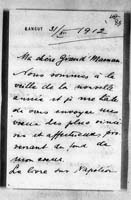 RANGUT 31/XII 1912
Ma chère Grand' Maman
Nous sommes à la
veille de la nouvelle
année et je me hâte
de vous envoyer mes
vœux des plus sincè-
res et affectueux pro-
venant du fond de
mon cœur.
Le livre sur Napoléon